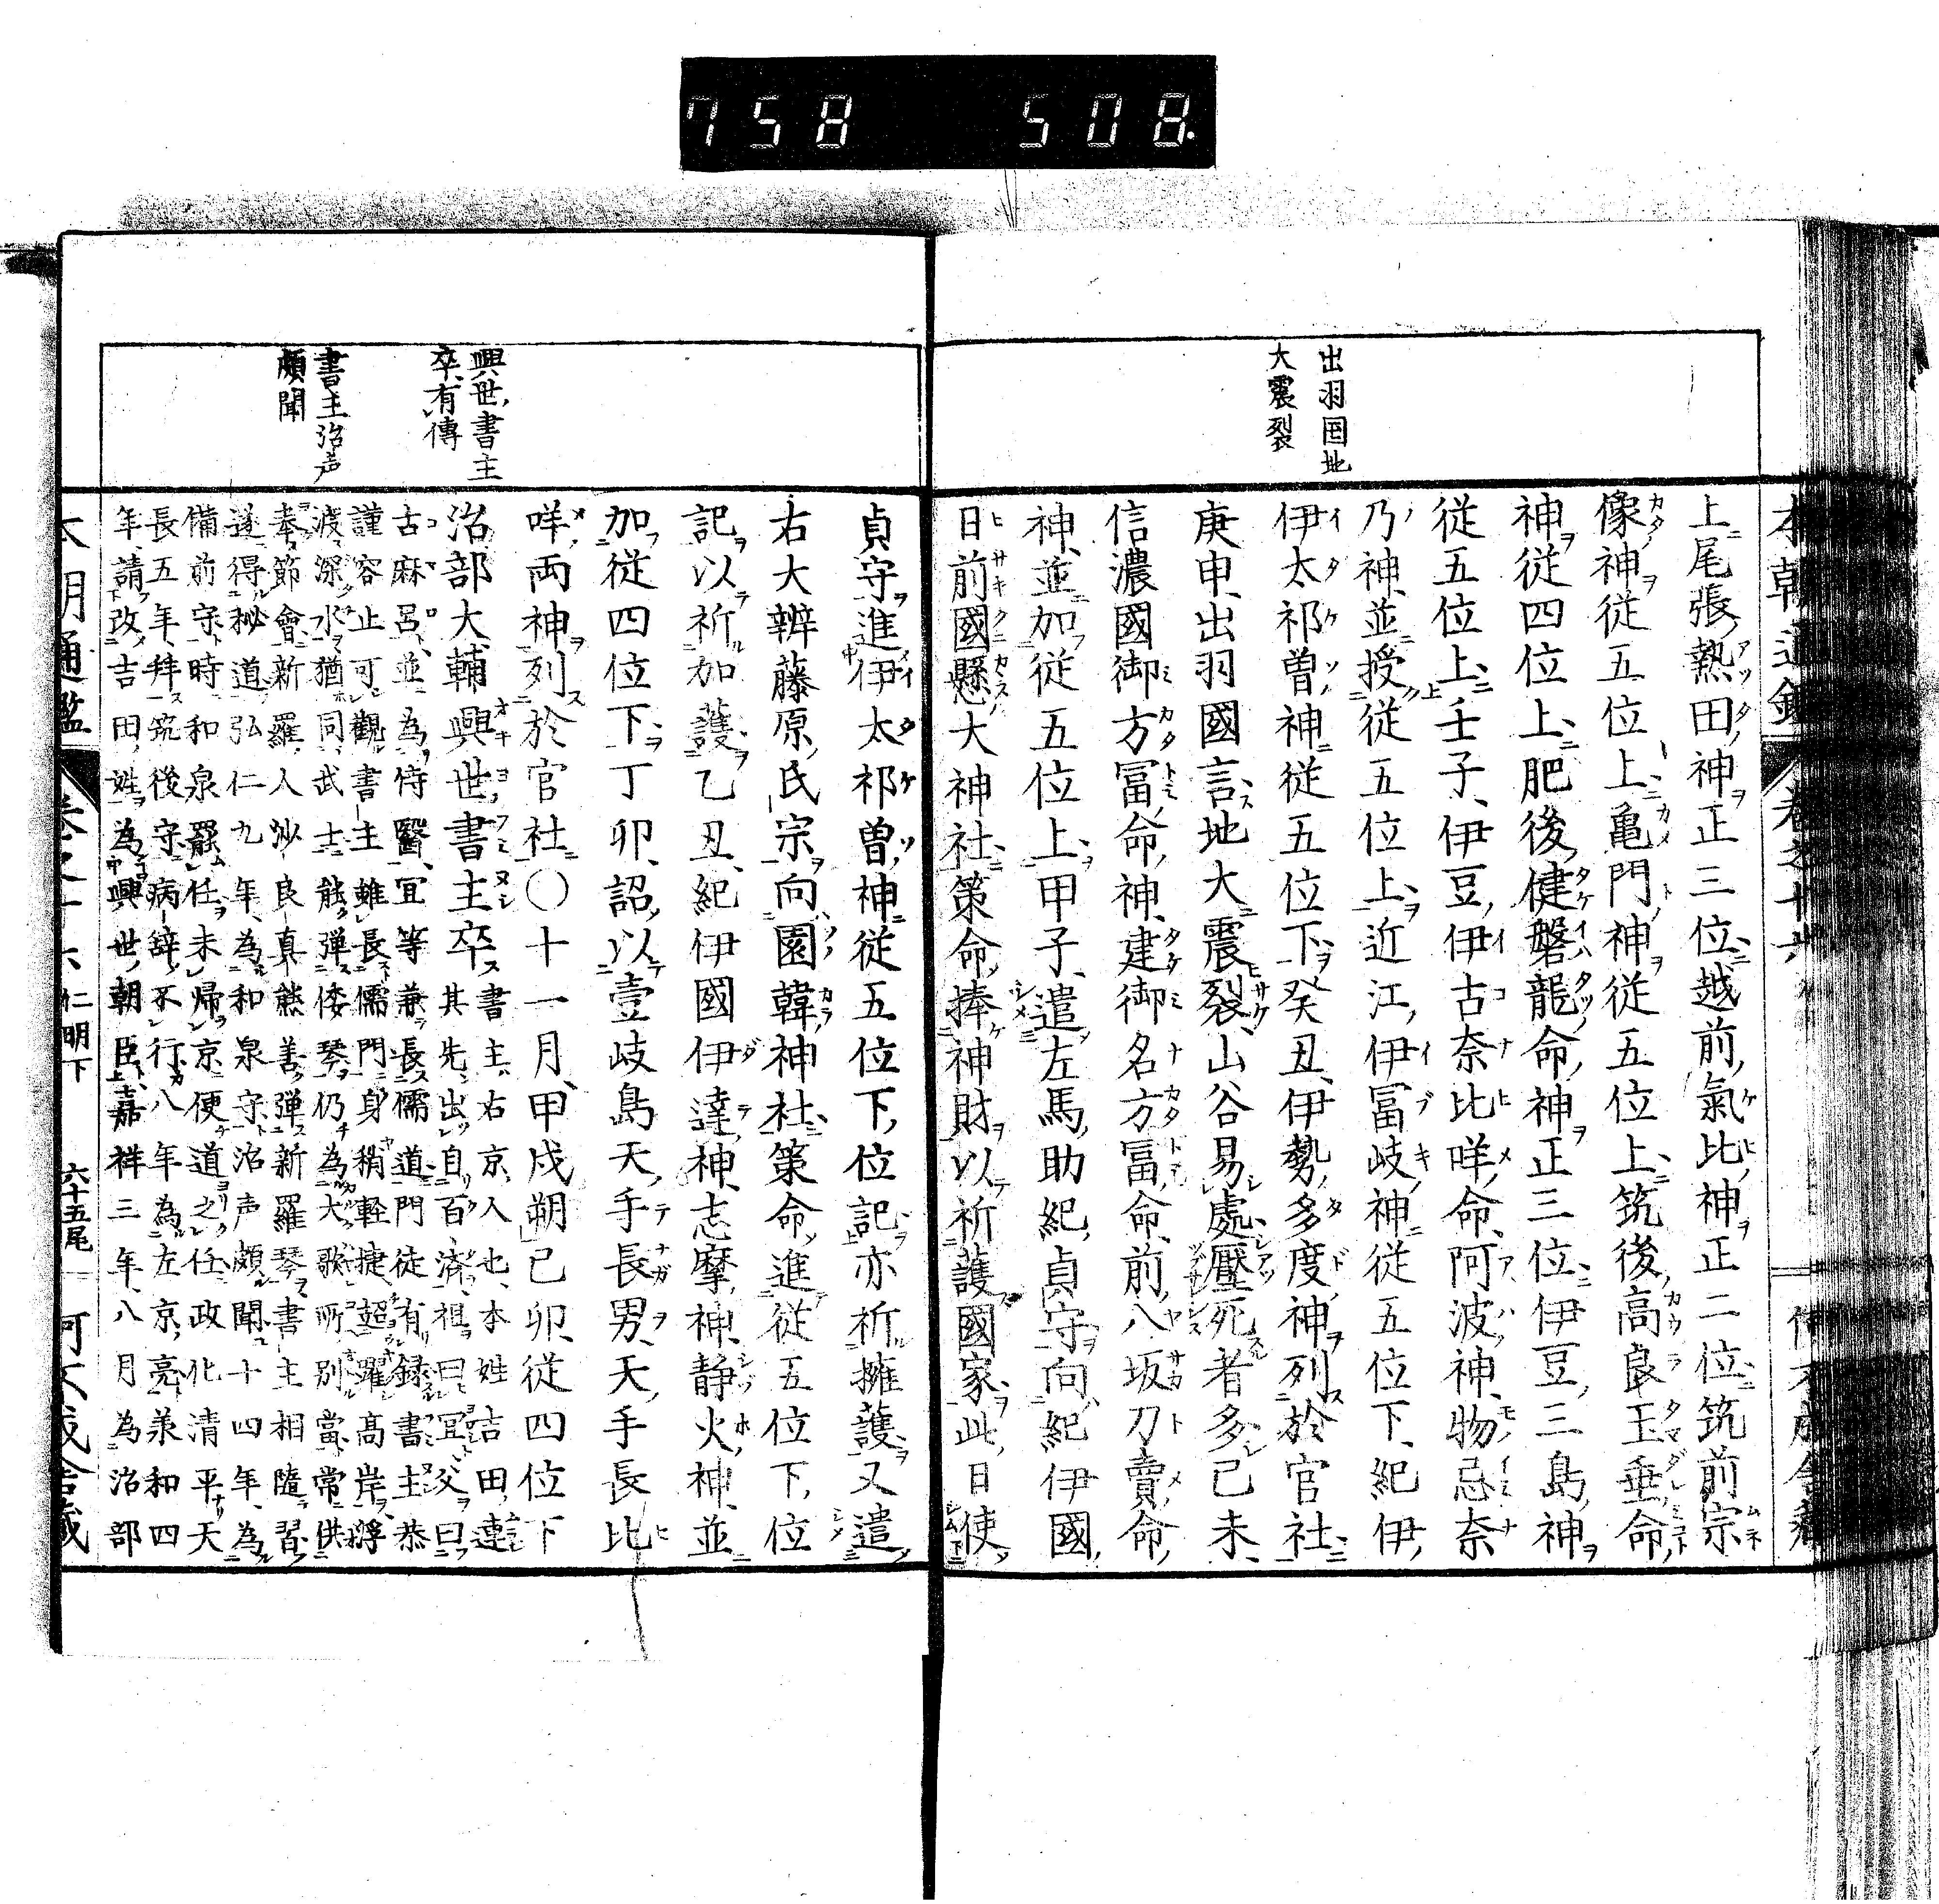 758 508.
本朝通鑑 卷之十六
出羽国地
大震裂
上尾張熱田神正三位越前氣比神正二位筑前宗
像神従五位上亀門神従五位上筑後高良玉垂命
神従四位上肥後健磐龍命神正三位伊豆三島神
従五位上壬子伊豆伊古奈比咩命阿波神物忌奈
乃神並授従五位上近江伊冨岐神従五位下紀伊
伊太祁曽神従五位下癸丑伊勢多度神列於官社
庚申出羽國言地大震裂山谷易處壓死者多己未
信濃國御方冨命神建御名方冨命前八坂刀賣命
神並加従五位上甲子遣左馬助紀貞守向紀伊國
日前國懸大神社策命捧神財以祈護國家此日使
興世書主
卒有傳
書主治声
頗聞
貞守進伊太祁曽神従五位下位記亦祈擁護又遣
右大辨藤原氏宗向園韓神社策命進従五位下位
記以祈加護乙丑紀伊國伊達神志摩神静火神並
加従四位下丁卯詔以壹岐島天手長男天手長比
咩両神列於官社〇十一月甲戌朔己卯従四位下
治部大輔興世書主卒書主右京人也本姓吉田連
其先出自百済祖曰宜父曰
古麻呂並為侍醫宜等兼長儒道門徒有録書主恭
謹容止可觀書主雖長儒門身稍軽捷超躍高岸浮
渡深水猶同武士能弾倭琴仍為大歌所別當常供
奉節會新羅人沙良真熊善弾新羅琴書主相隨習
遂得秘道弘仁九年為和泉守治声頗聞十四年為
備前守時和泉罷任未帰京便道之任政化清平天
長五年拜筑後守病辞不行八年為左京亮承和四
年請改吉田姓為興世朝臣嘉祥三年八月為治部
本朝通鑑 卷之十六 仁明下 六十五尾